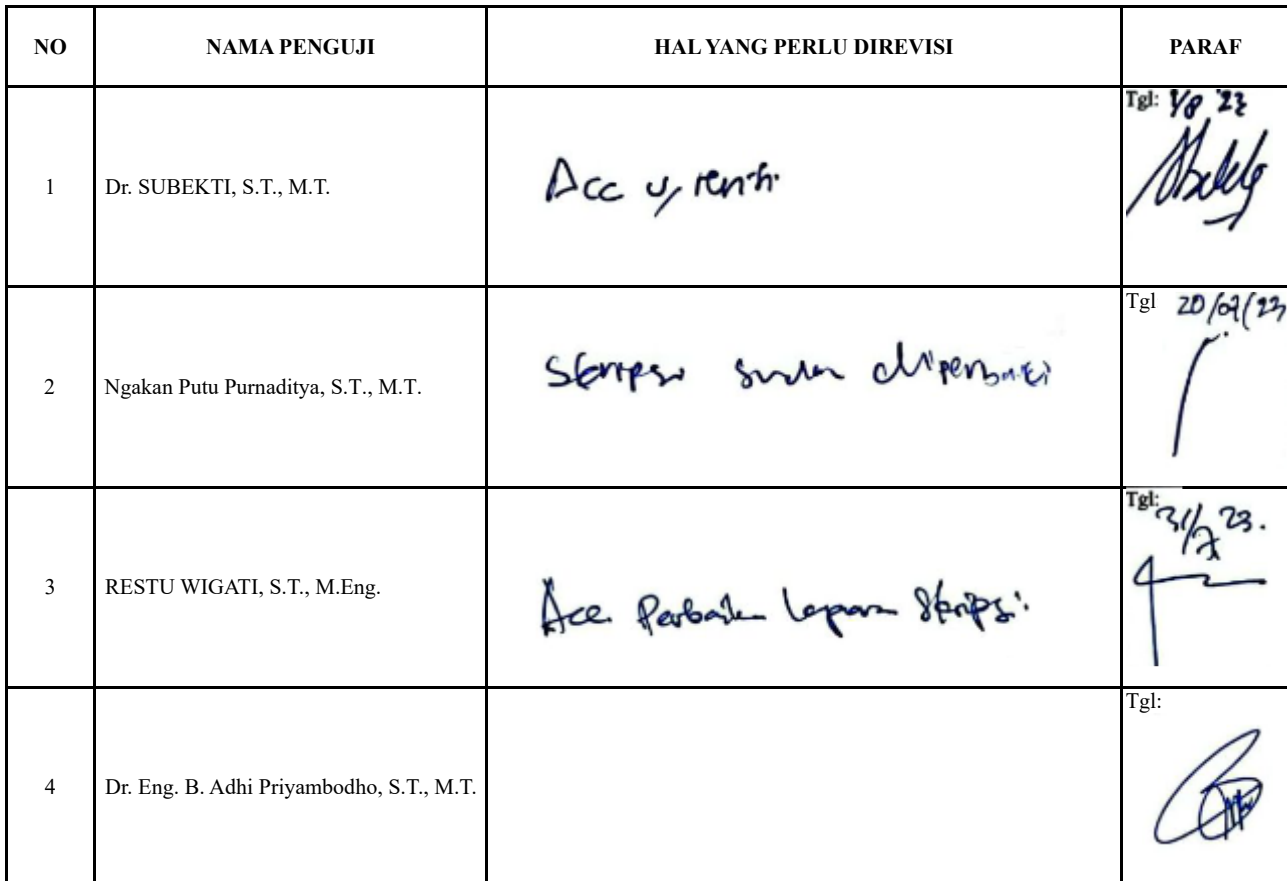 NO NAMA PENGUJI HAL YANG PERLU DIREVISI PARAF
Tgl: 1/8 '23
1 Dr. SUBEKTI, S.T., M.T. Acc u/
Tgl 20/07/23
2 Ngakan Putu Purnaditya, S.T., M.T. Skripsi sudah diperbaiki
Tgl: 31/7 23.
3 RESTU WIGATI, S.T., M.Eng. Acc Perbaikan Laporan Skripsi
Tgl:
4 Dr. Eng. B. Adhi Priyambodho, S.T., M.T.